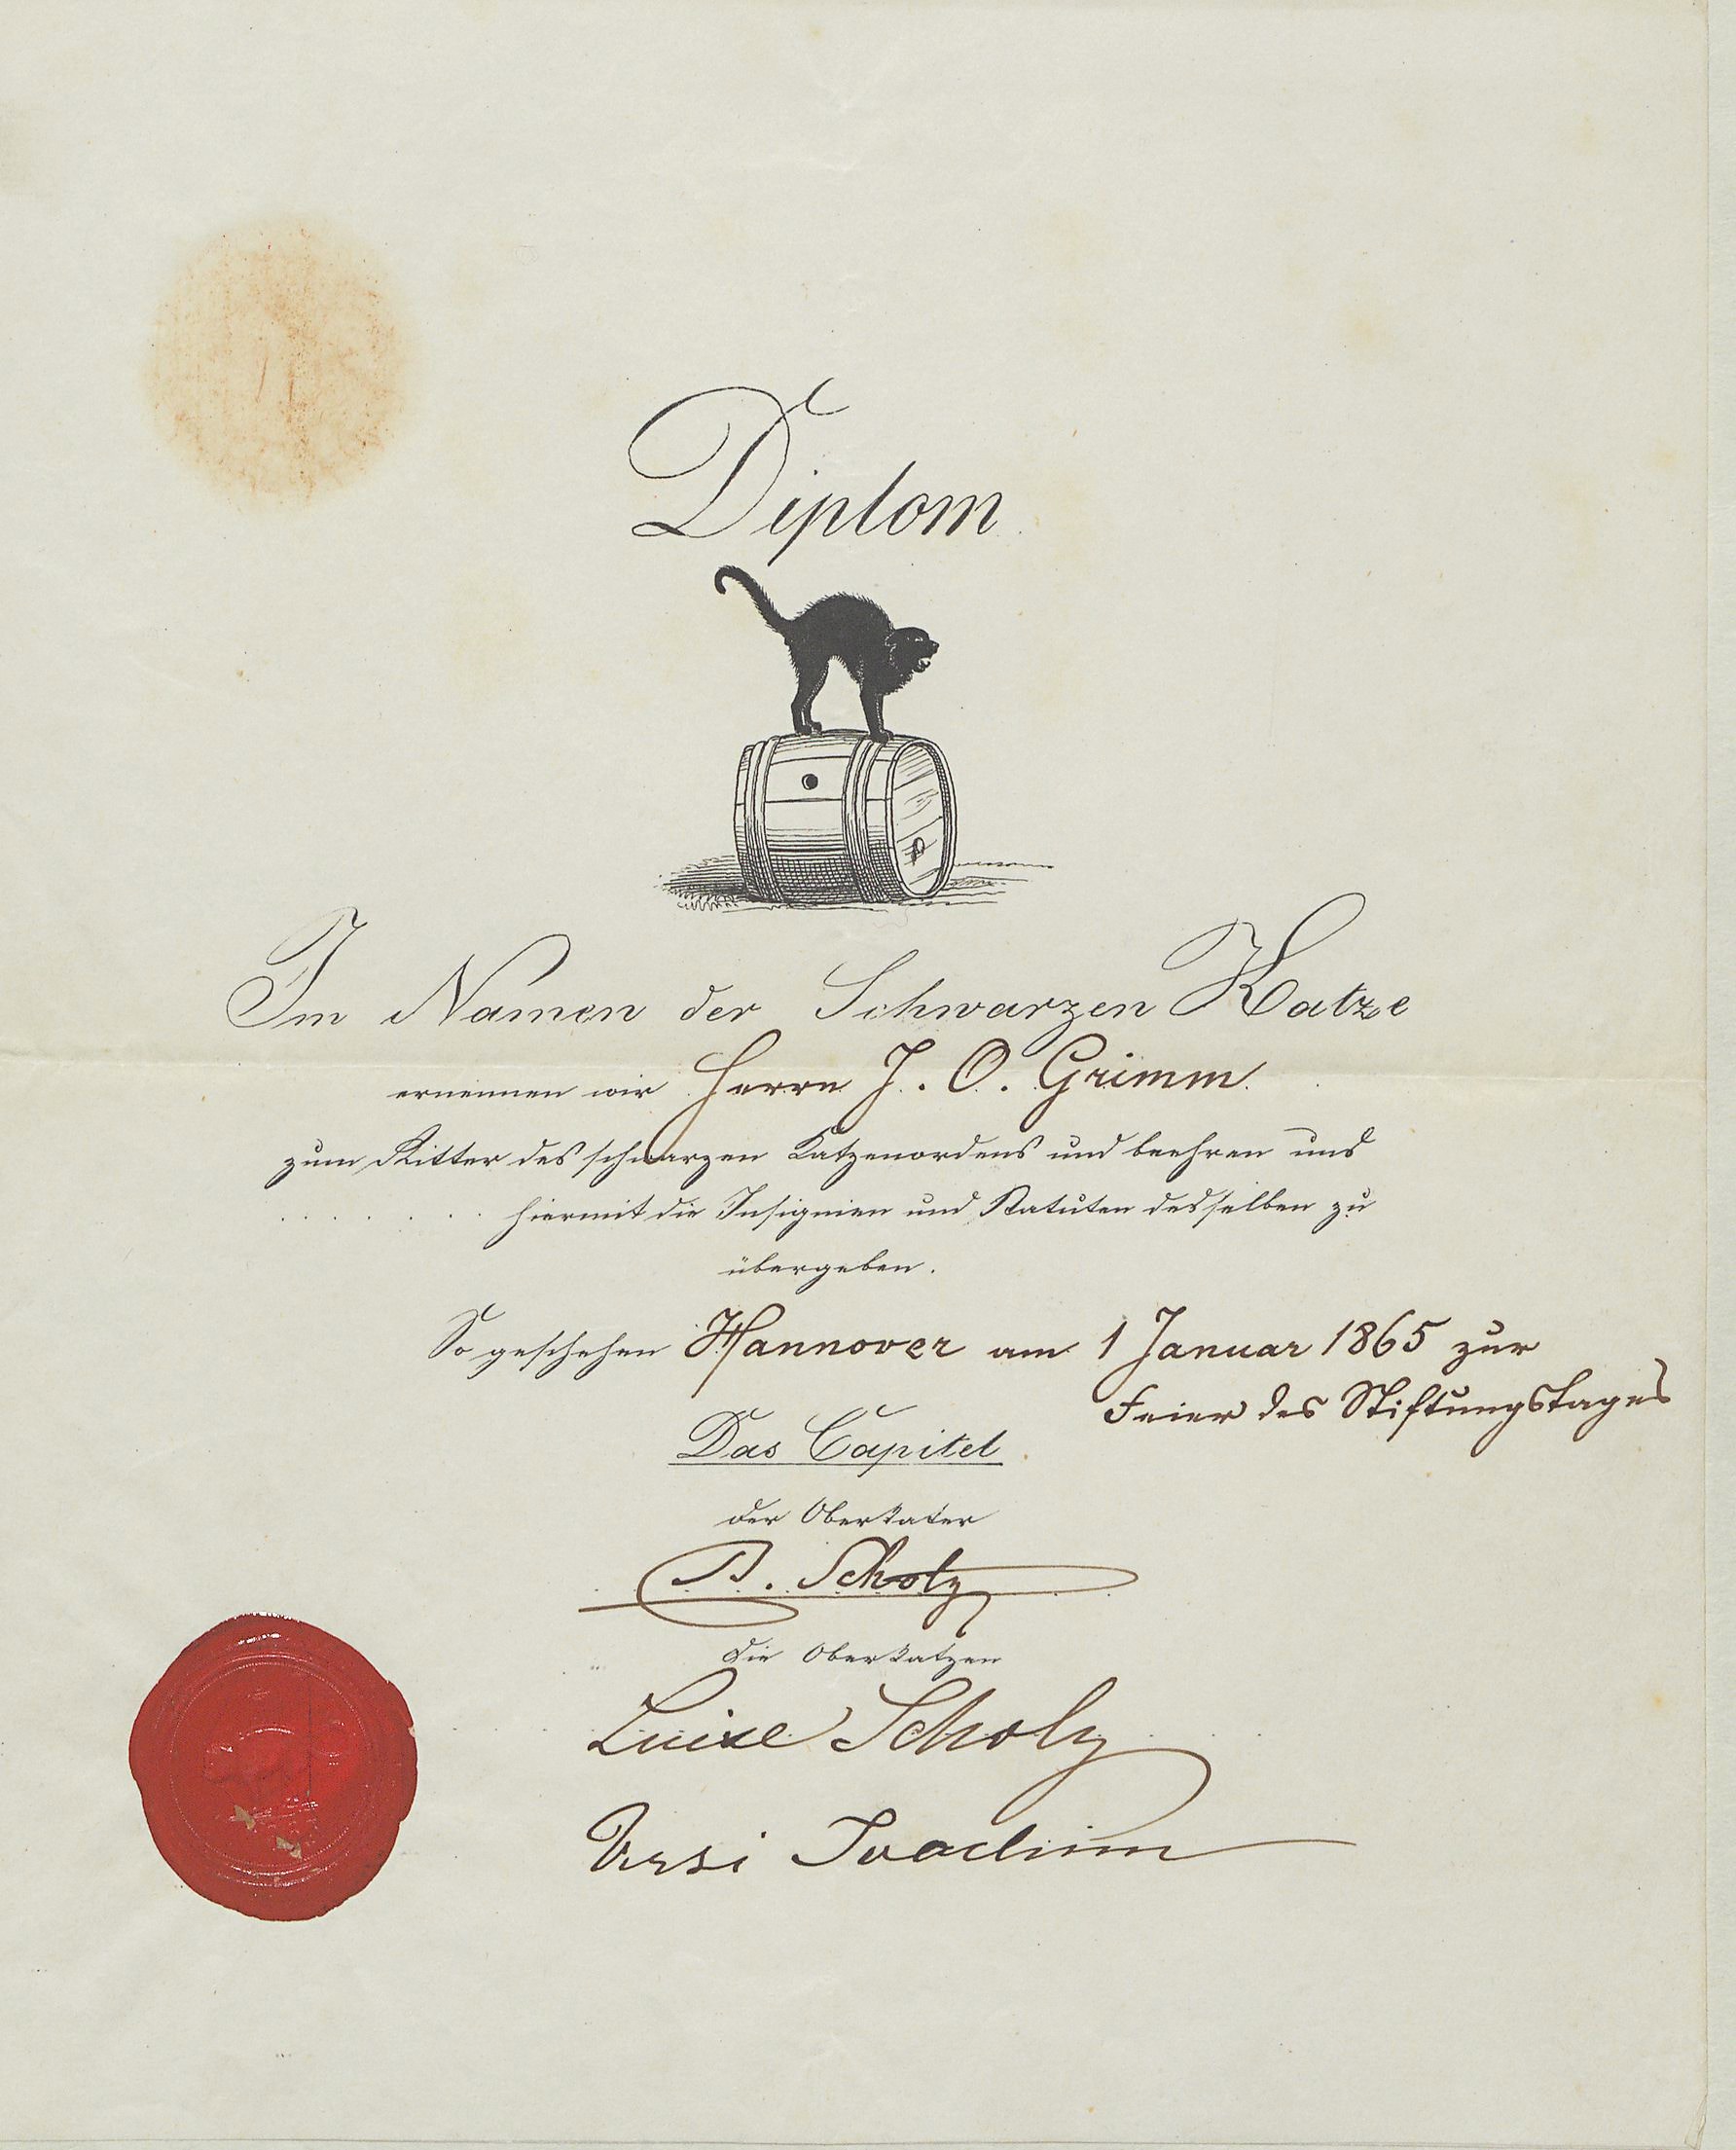 Diplom
Im Namen der Schwarzen Katze
ernennen wir Herrn J. O. Grimm
zum Ritter des schwarzen Katzenordens und beehren uns
hiermit die Insignien und Statuten desselben zu
übergeben.
So geschehen Hannover am 1 Januar 1865 zur
Feier des Stiftungstages
Das Capitel
der Oberkater
B. Scholz
die Oberkatzen
Luise Scholz
Ursi Joachim